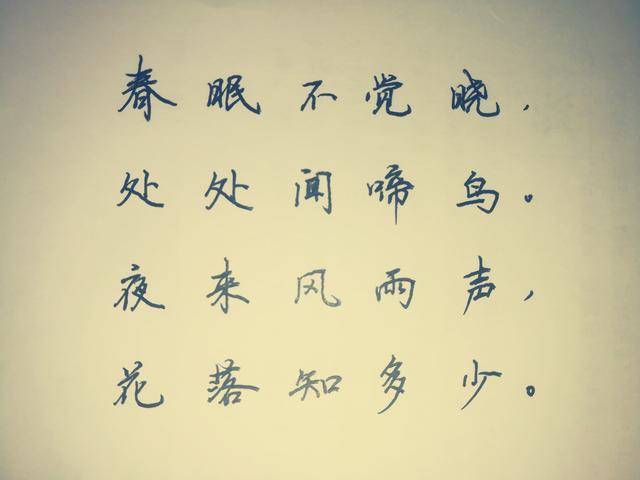 春眠不觉晓，
处处闻啼鸟。
夜来风雨声，
花落知多少。